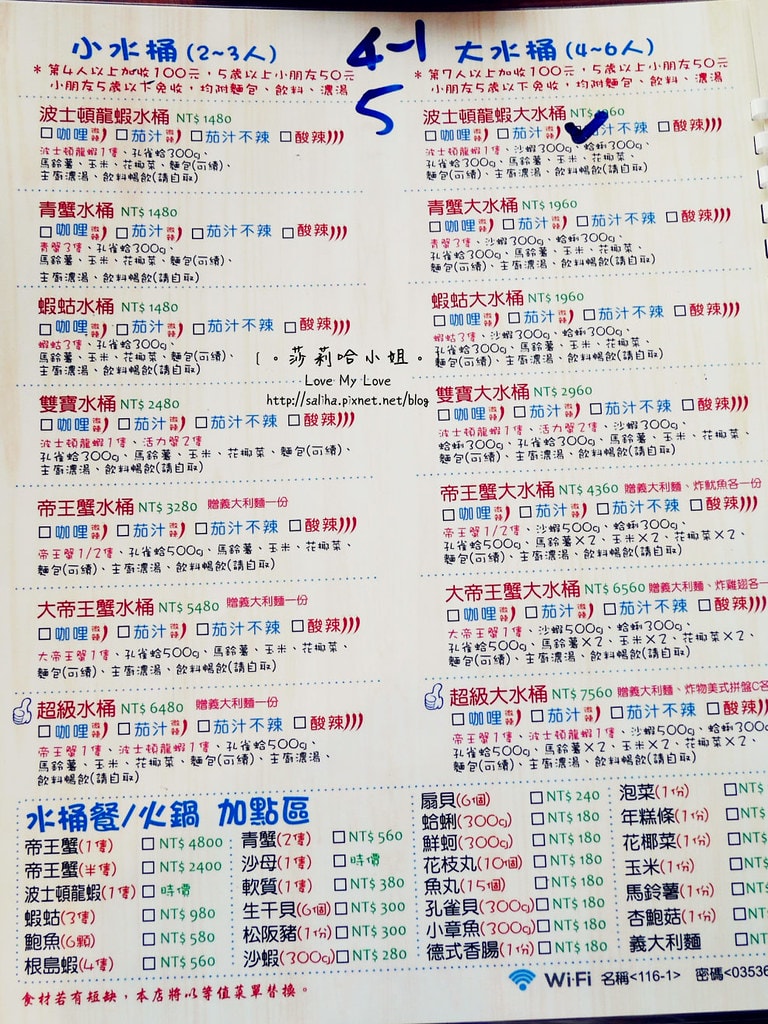 小水桶(2~3人)
4-1
大水桶(4~6人)
*第4人以上加收100元，5歲以上小朋友50元
小朋友5歲以下免收，均附麵包、飲料、濃湯
*第7人以上加收100元，5歲以上小朋友50元
小朋友5歲以下免收，均附麵包、飲料、濃湯
5
波士頓龍蝦水桶 NT$ 1480
□咖哩微辣 □茄汁微辣 □茄汁不辣 □酸辣
波士頓龍蝦1隻、孔雀蛤300g、
馬鈴薯、玉米、花椰菜、麵包(可續)、
主廚濃湯、飲料暢飲(請自取)
青蟹水桶 NT$ 1480
□咖哩微辣 □茄汁微辣 □茄汁不辣 □酸辣
青蟹3隻、孔雀蛤300g、
馬鈴薯、玉米、花椰菜、麵包(可續)、
主廚濃湯、飲料暢飲(請自取)
蝦蛄水桶 NT$ 1480
□咖哩微辣 □茄汁微辣 □茄汁不辣 □酸辣
蝦蛄3隻、孔雀蛤300g、
馬鈴薯、玉米、花椰菜、麵包(可續)、
主廚濃湯、飲料暢飲(請自取)
雙寶水桶 NT$ 2480
□咖哩微辣 □茄汁微辣 □茄汁不辣 □酸辣
波士頓龍蝦1隻、活力蟹2隻
孔雀蛤300g、馬鈴薯、玉米、花椰菜、麵包(可續)、
主廚濃湯、飲料暢飲(請自取)
帝王蟹水桶 NT$ 3280 贈義大利麵一份
□咖哩微辣 □茄汁微辣 □茄汁不辣 □酸辣
帝王蟹1/2隻、孔雀蛤500g、馬鈴薯、玉米、花椰菜、
麵包(可續)、主廚濃湯、飲料暢飲(請自取)
大帝王蟹水桶 NT$ 5480 贈義大利麵一份
□咖哩微辣 □茄汁微辣 □茄汁不辣 □酸辣
大帝王蟹1隻、孔雀蛤500g、馬鈴薯、玉米、花椰菜、
麵包(可續)、主廚濃湯、飲料暢飲(請自取)
超級水桶 NT$ 6480 贈義大利麵一份
□咖哩微辣 □茄汁微辣 □茄汁不辣 □酸辣
帝王蟹1隻、波士頓龍蝦1隻、孔雀蛤500g、
馬鈴薯、玉米、花椰菜、麵包(可續)、主廚濃湯、
飲料暢飲(請自取)
波士頓龍蝦大水桶 NT$ 1960
□咖哩微辣 □茄汁微辣 茄汁不辣 □酸辣
波士頓龍蝦1隻、沙蝦300g、蛤蜊300g、
孔雀蛤300g、馬鈴薯、玉米、花椰菜、
麵包(可續)、主廚濃湯、飲料暢飲(請自取)
青蟹大水桶 NT$ 1960
□咖哩微辣 □茄汁微辣 □茄汁不辣 □酸辣
青蟹3隻、沙蝦300g、蛤蜊300g、
孔雀蛤300g、馬鈴薯、玉米、花椰菜、
麵包(可續)、主廚濃湯、飲料暢飲(請自取)
蝦蛄大水桶 NT$ 1960
□咖哩微辣 □茄汁微辣 □茄汁不辣 □酸辣
蝦蛄3隻、沙蝦300g、蛤蜊300g、
孔雀蛤300g、馬鈴薯、玉米、花椰菜、
麵包(可續)、主廚濃湯、飲料暢飲(請自取)
雙寶大水桶 NT$ 2960
□咖哩微辣 □茄汁微辣 □茄汁不辣 □酸辣
波士頓龍蝦1隻、活力蟹2隻、沙蝦300g、
蛤蜊300g、孔雀蛤300g、馬鈴薯、玉米、花椰菜、
麵包(可續)、主廚濃湯、飲料暢飲(請自取)
帝王蟹大水桶 NT$ 4360 贈義大利麵、炸魷魚各一份
□咖哩微辣 □茄汁微辣 □茄汁不辣 □酸辣
帝王蟹1/2隻、沙蝦500g、蛤蜊300g、
孔雀蛤500g、馬鈴薯X2、玉米X2、花椰菜X2、
麵包(可續)、主廚濃湯、飲料暢飲(請自取)
大帝王蟹大水桶 NT$ 6560 贈義大利麵、炸雞翅各一
□咖哩微辣 □茄汁微辣 □茄汁不辣 □酸辣
大帝王蟹1隻、沙蝦500g、蛤蜊300g、
孔雀蛤500g、馬鈴薯X2、玉米X2、花椰菜X2、
麵包(可續)、主廚濃湯、飲料暢飲(請自取)
超級大水桶 NT$ 7560 贈義大利麵、炸物美式拼盤C各
□咖哩微辣 □茄汁微辣 □茄汁不辣 □酸辣
帝王蟹1隻、波士頓龍蝦1隻、沙蝦500g、蛤蜊300g
孔雀蛤500g、馬鈴薯X2、玉米X2、花椰菜X2、
麵包(可續)、主廚濃湯、飲料暢飲(請自取)
[。莎莉哈小姐。
Love My Love
http://saliha.pixnet.net/blog
水桶餐/火鍋 加點區
帝王蟹(1隻) □NT$ 4800
帝王蟹(半隻) □NT$ 2400
波士頓龍蝦(1隻) □時價
蝦蛄(3隻) □NT$ 980
鮑魚(6顆) □NT$ 580
根島蝦(4隻) □NT$ 560
青蟹(2隻) □NT$ 560
沙母(1隻) □時價
軟質(1隻) □NT$ 380
生干貝(6個) □NT$ 300
松阪豬(1份) □NT$ 300
沙蝦(300g) □NT$ 280
扇貝(6個) □NT$ 240
蛤蜊(300g) □NT$ 180
鮮蚵(300g) □NT$ 180
花枝丸(10個) □NT$ 180
魚丸(15個) □NT$ 180
孔雀貝(300g) □NT$ 180
小章魚(300g) □NT$ 180
德式香腸(1份) □NT$ 180
泡菜(1份) □NT$
年糕條(1份) □NT$
花椰菜(1份) □NT$
玉米(1份) □NT$
馬鈴薯(1份) □NT$
杏鮑菇(1份) □NT$
義大利麵 □NT
Wi-Fi 名稱<116-1> 密碼<03536
食材若有短缺，本店將以等值菜單替換。